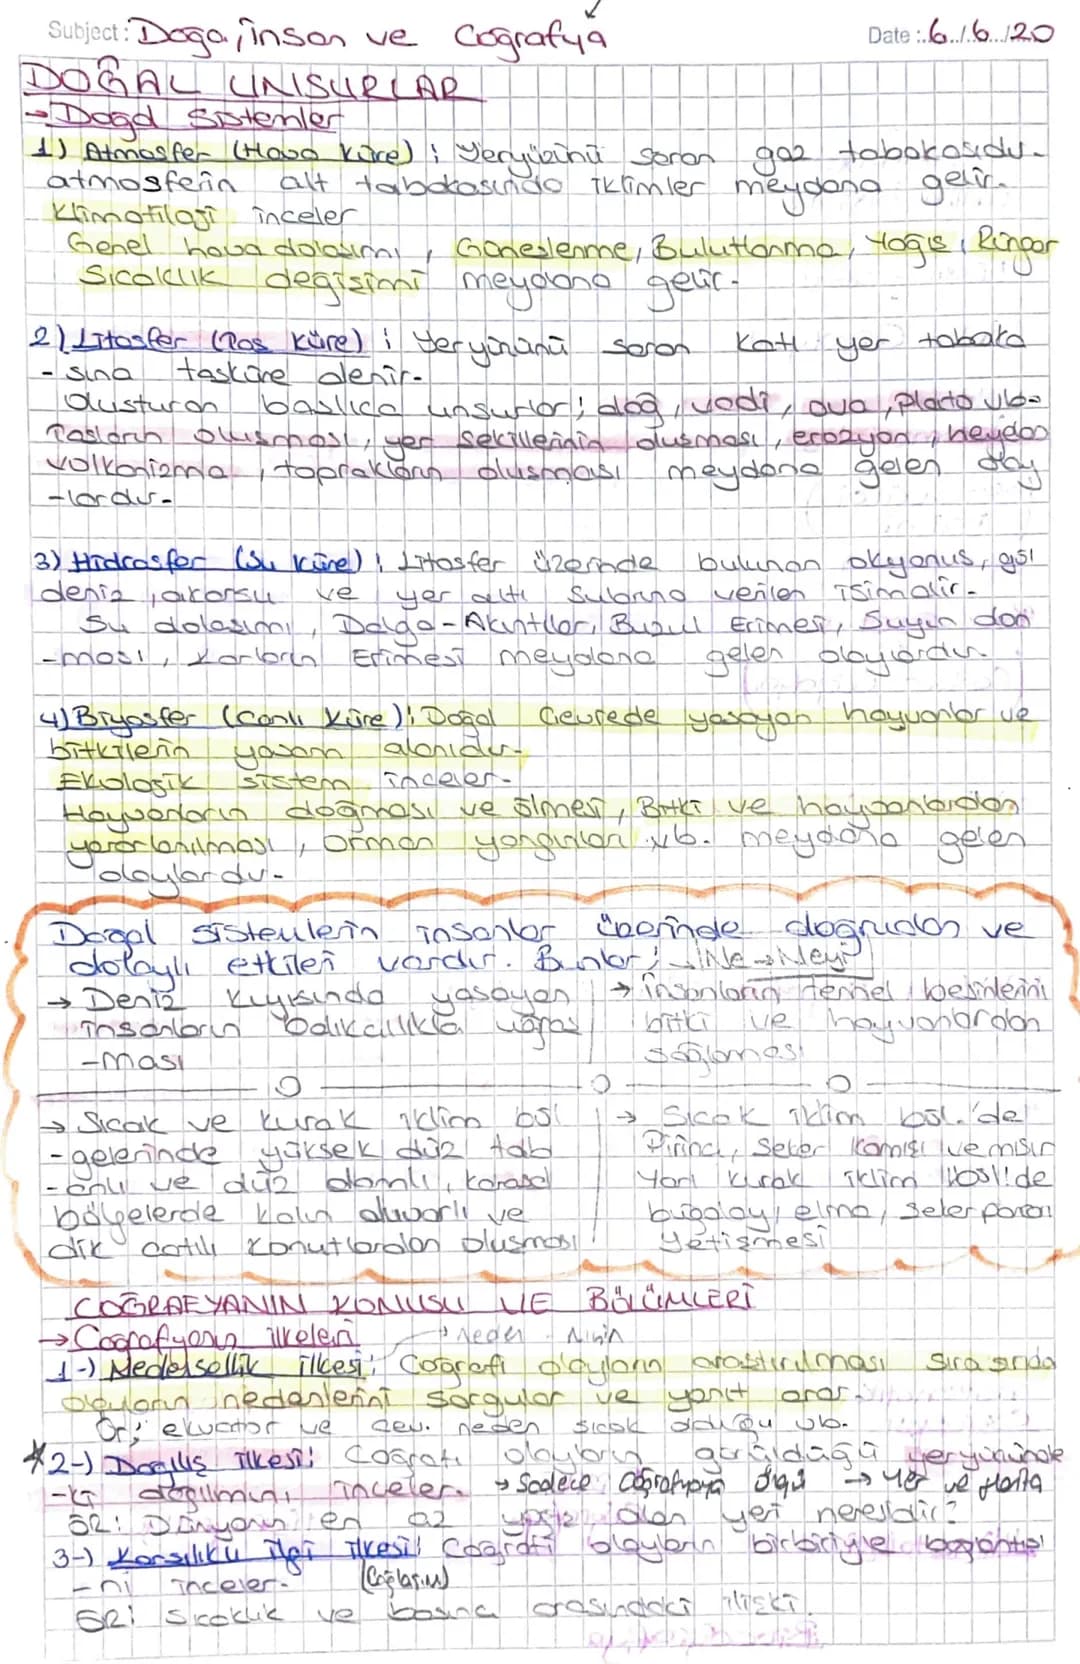 Subject: Doğa, insan ve Coğrafya
Date: 6/6/20
DOĞAL UNSURLAR
→ Doğal Sistemler
1) Atmosfer (Hava Küre) : Yeryüzünü saran gaz tabakasıdır.
atmosferin alt tabakasında iklimler meydana gelir.
Klimatiloji inceler
Genel hava dolaşımı, Güneşlenme, Bulutlanma, Yağış, Rüzgar
Sıcaklık değişimi meydana gelir.
2) Litosfer (Taş Küre) : Yeryüzünü saran katı yer tabaka
-sına taşküre denir.
Oluşturan başlıca unsurlar; dağ, vadi, ova, plato vb.
Taşların oluşması, yer şekillerinin oluşması, erozyon, heyelan
volkanizma, toprakların oluşması meydana gelen olay
-lardır.
3) Hidrosfer (Su Küre) : Litosfer üzerinde bulunan okyanus, göl
deniz, akarsu ve yer altı sularına verilen isimdir.
Su dolaşımı, Dalga-Akıntılar, Buzul Erimesi, Suyun don
-ması, Karların Erimesi meydana gelen olaylardır.
4) Biyosfer (Canlı Küre) : Doğal Çevrede yaşayan hayvanlar ve
bitkilerin yaşam alanıdır.
Ekolojik sistem inceler.
Hayvanların doğması ve ölmesi, Bitki ve hayvanlardan
yararlanılması, orman yangınları vb. meydana gelen
olaylardır.
Doğal sistemlerin insanlar üzerinde doğrudan ve
dolaylı etkileri vardır. Bunlar; Ne → Neyi
→ Deniz kıyısında yaşayan
insanların balıkçılıkla uğraş
-ması
→ insanların temel besinlerini
bitki ve hayvanlardan
sağlaması
→ Sıcak ve kurak iklim böl
-gelerinde yüksek düz tab
-anlı ve düz damlı, karasal
bölgelerde kalın duvarlı ve
dik çatılı konutlardan oluşması
→ Sıcak iklim böl.'de
Pirinç, Şeker kamışı ve mısır
Yarı kurak iklim böl.'de
buğday, elma, şeker pancarı
yetişmesi
COĞRAFYANIN KONUSU VE BÖLÜMLERİ
→ Coğrafyanın ilkeleri
→ Neden Niçin
1-) Nedensellik ilkesi: Coğrafi olayların araştırılması sırasında
olayların nedenlerini sorgular ve yanıt arar.
Ör; ekvator ve çev. neden sıcak olduğu vb.
*2-) Dağılış ilkesi: Coğrafi olayların görüldüğü yeryüzünde
-ki dağılımını inceler. → Sadece Coğrafyaya özgü → Yer ve Harita
ÖR: Dünyanın en az yağış alan yeri neresidir?
3-) Karşılıklı ilgi ilkesi: Coğrafi olayların birbiriyle bağlantısı
-nı inceler.
ÖR: Sıcaklık ve basınç arasındaki ilişki.